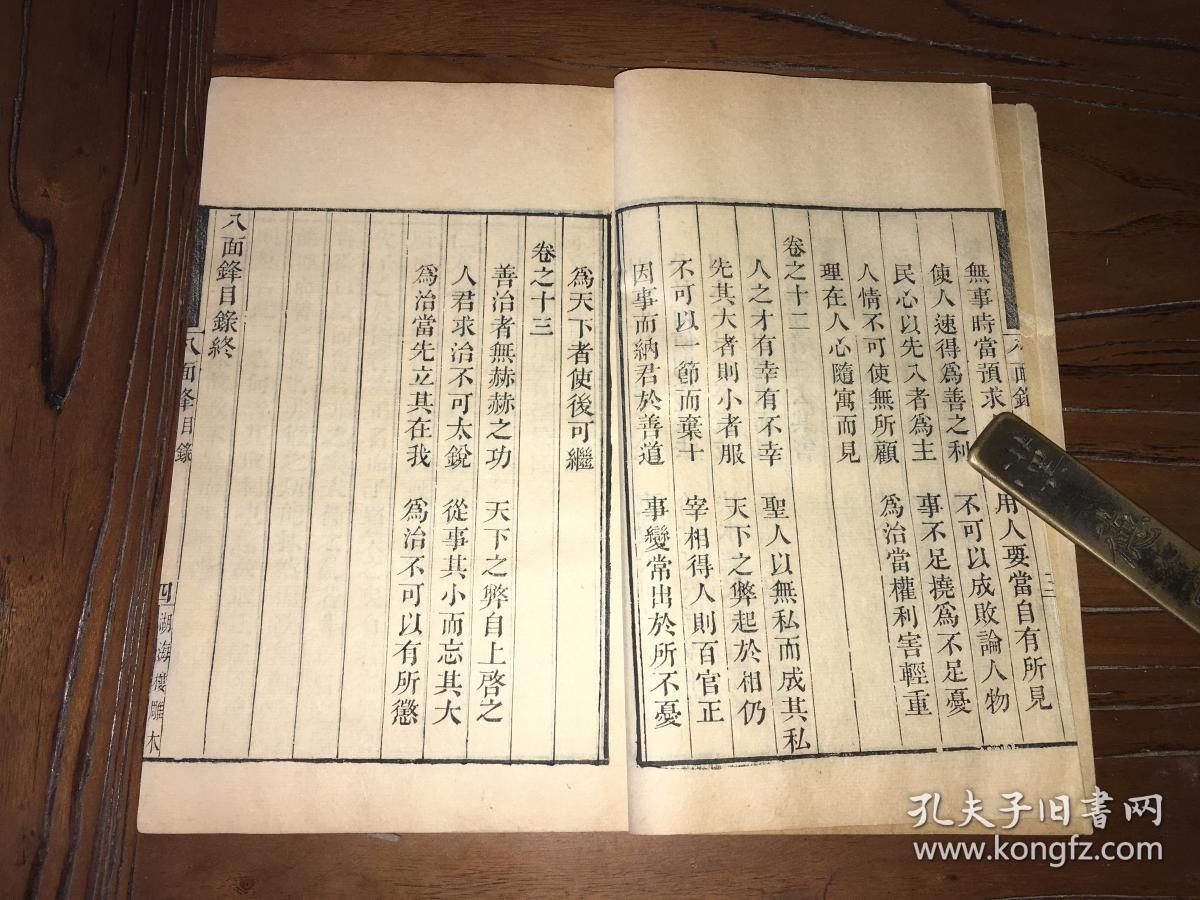 無時當預求 用人要當自有所見
使人速得爲善之利 不可以成敗論人物
民心以先入者爲主 事不足撓爲不足憂
人情不可使無所顧 爲治當權利害輕重
理在人心隨寓而見
卷之十二
人之才有幸有不幸 聖人以無私而成其私
先其大者則小者服 天下之弊起於相仍
不可以一節而棄士 宰相得人則百官正
因事而納君於善道 事變常出於所不憂
八面鋒目錄
三
爲天下者使後可繼
卷之十三
善治者無赫赫之功 天下之弊自上啓之
人君求治不可太銳 從事其小而忘其大
爲治當先立其在我 爲治不可以有所懲
八面鋒目錄終
八面鋒目錄
四
湖海樓雕本
孔夫子旧书网
www.kongfz.com